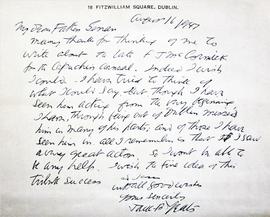 18 FITZWILLIAM SQUARE, DUBLIN.
August 16 1947
My Dear Father Senan
many thanks for thinking of me to
write about to the late F J McCormick
for Capuchin Annual. Indeed I wish
I could. I have tried to think of
what I could say. But though I have
seen him acting from the very beginning,
I have, through being out of Dublin missed
him in many of his parts, and of those I have
seen him in all I remember is that I saw
a very great actor. I want be able to
be any help. I wish to the idea of this
tribute success
with all good wishes
yours sincerely
Jack B Yeats